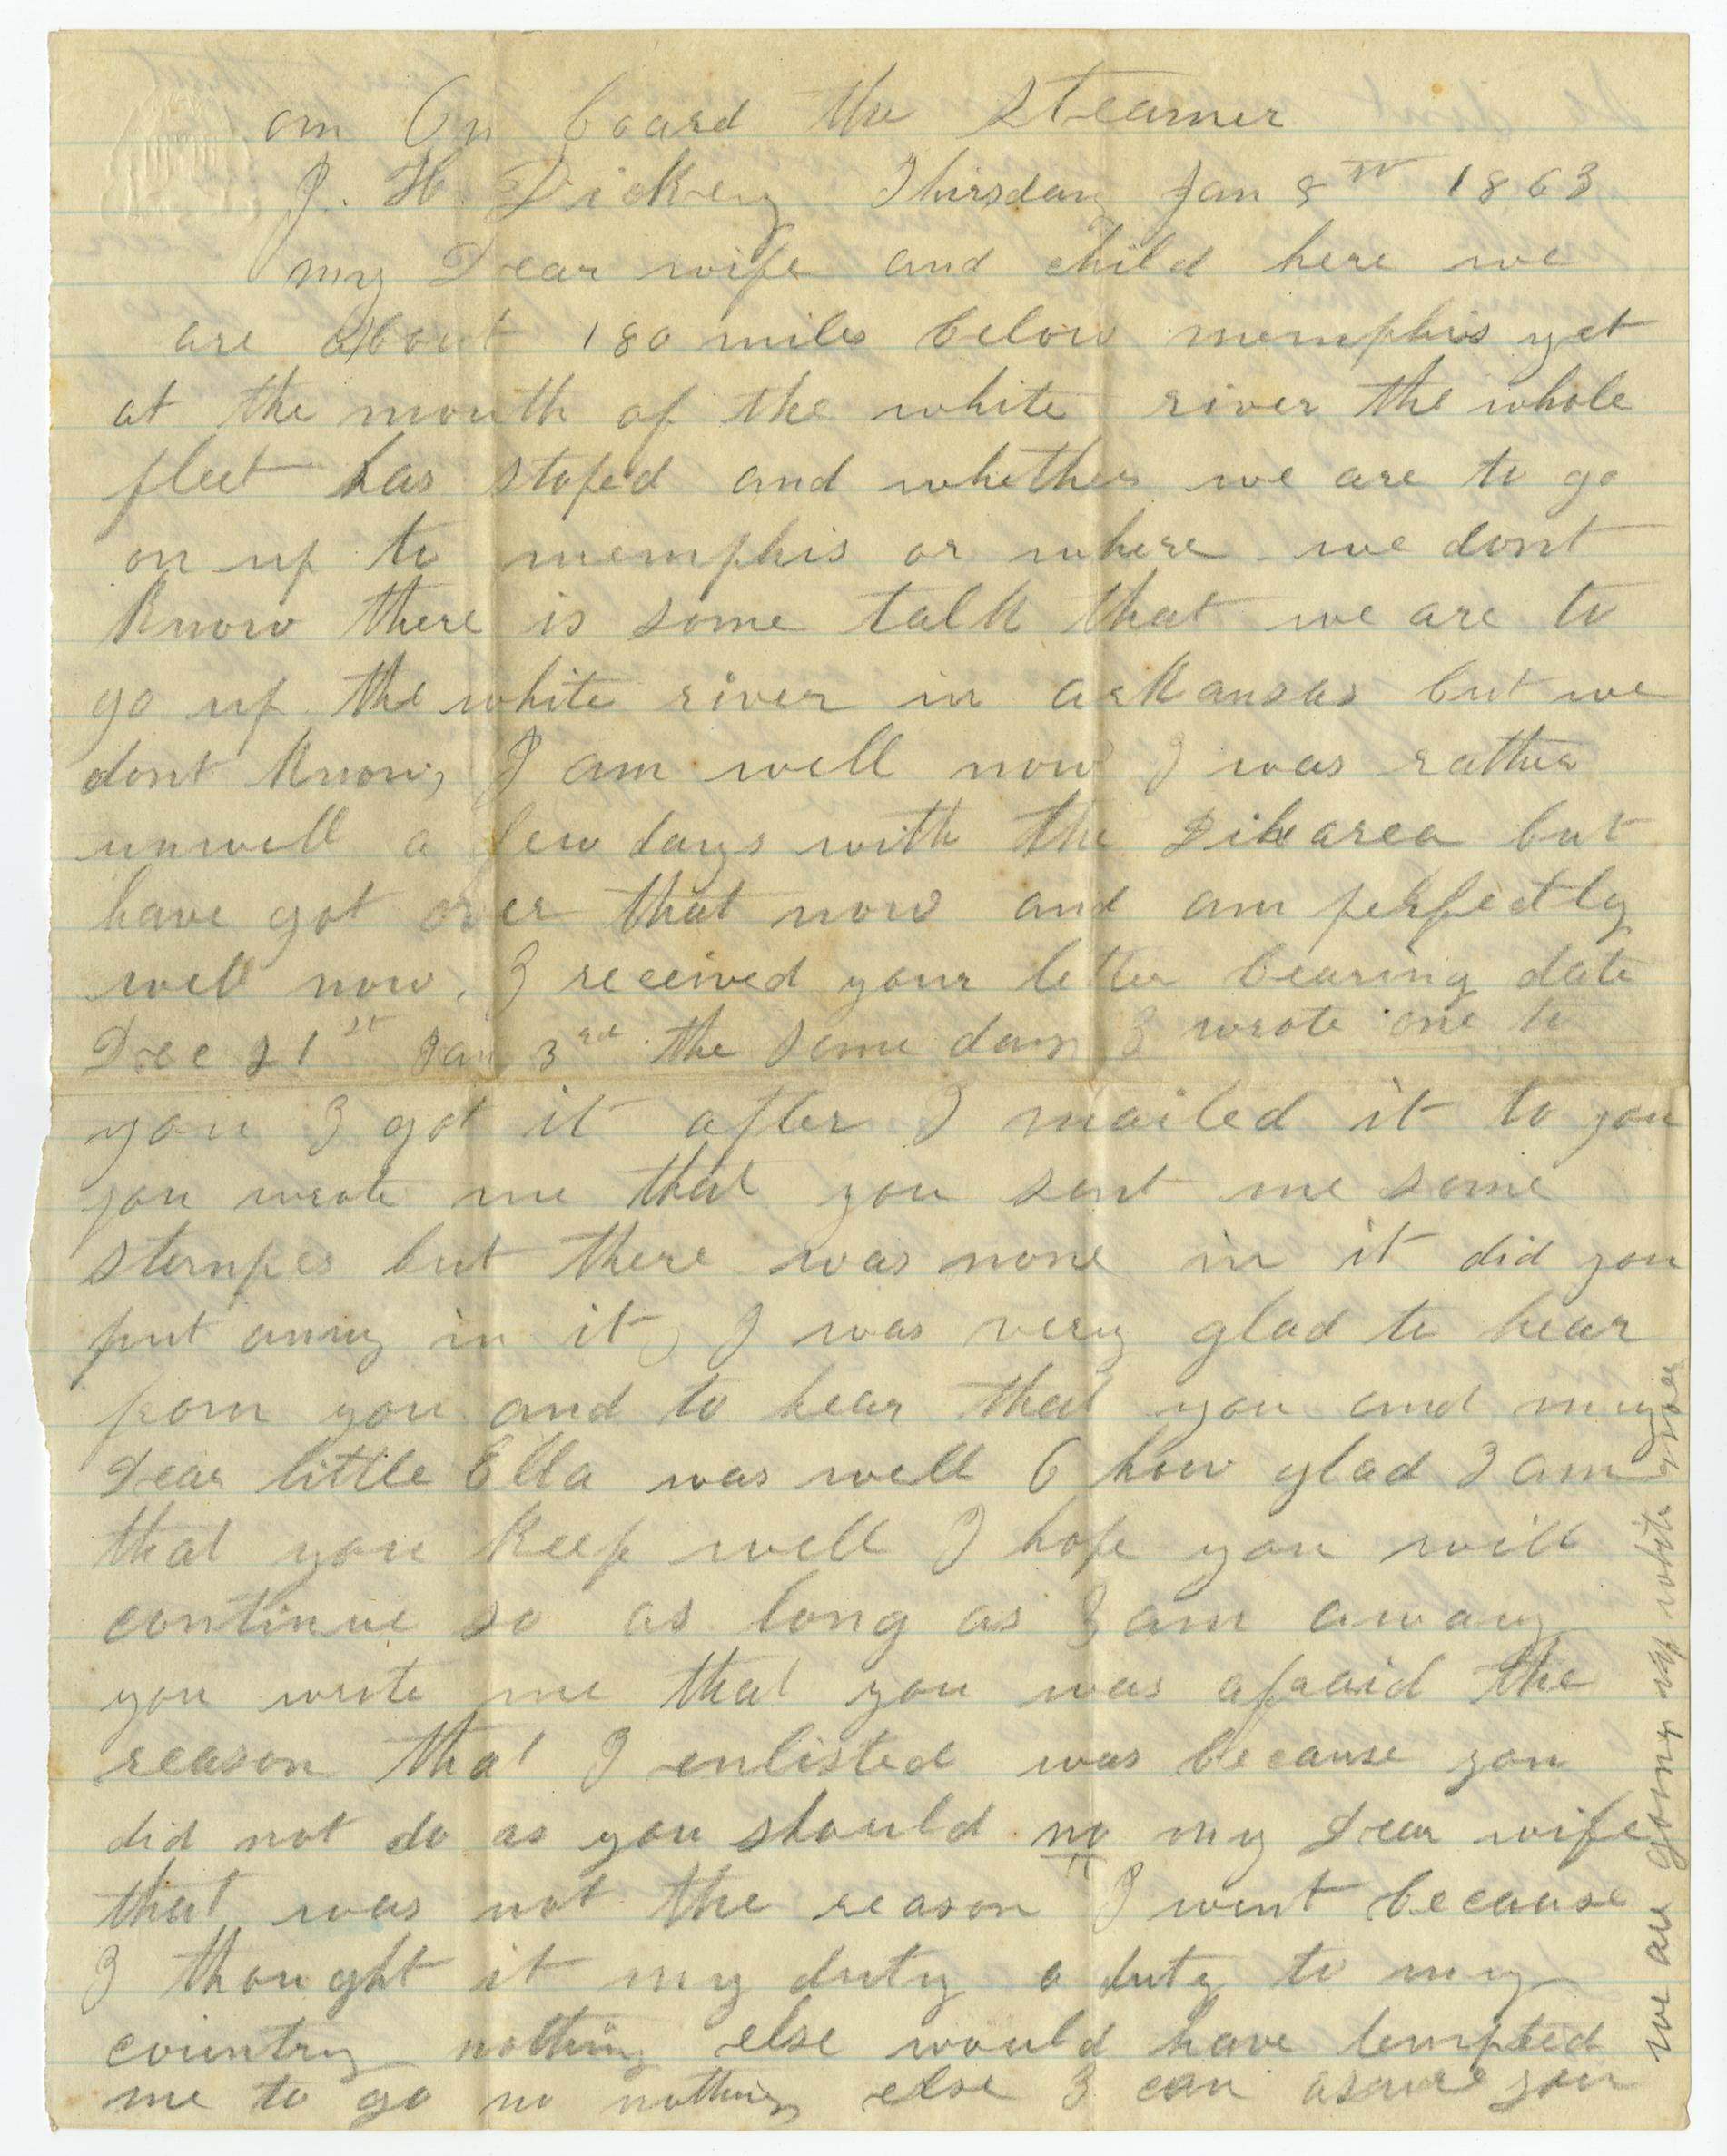 om On board the steamer
J. H. Dickey Thirsday Jan 8th 1863
my Dear wife and child here we
are about 180 miles below memphis yet
at the mouth of the white river the whole
fleet has stoped and whether we are to go
on up to memphis or where we dont
Know there is some talk that we are to
go up the white river in arkansas but we
dont Know, I am well now I was rather
unwell a few days with the but
have got over that now and am perfectly
well now. I received your letter bearing date
Dec 21st Jan 3rd the same day I wrote one to
you I got it after I mailed it to you
you wrote me that you sent me some
stampes but there was none in it did you
put anny in it, I was very glad to hear
from you and to hear that you and my
Dear little Ella was well O how glad I am
that you Keep well I hope you will
continue so as long as I am away
you wrote me that you was afraid the
reason that I enlisted was because you
did not do as you should no my Dear wife
that was not the reason I went because
I thought it my duty a duty to my
country nothing else would have tempted
me to go no nothing else I can assure you
we are going up white river